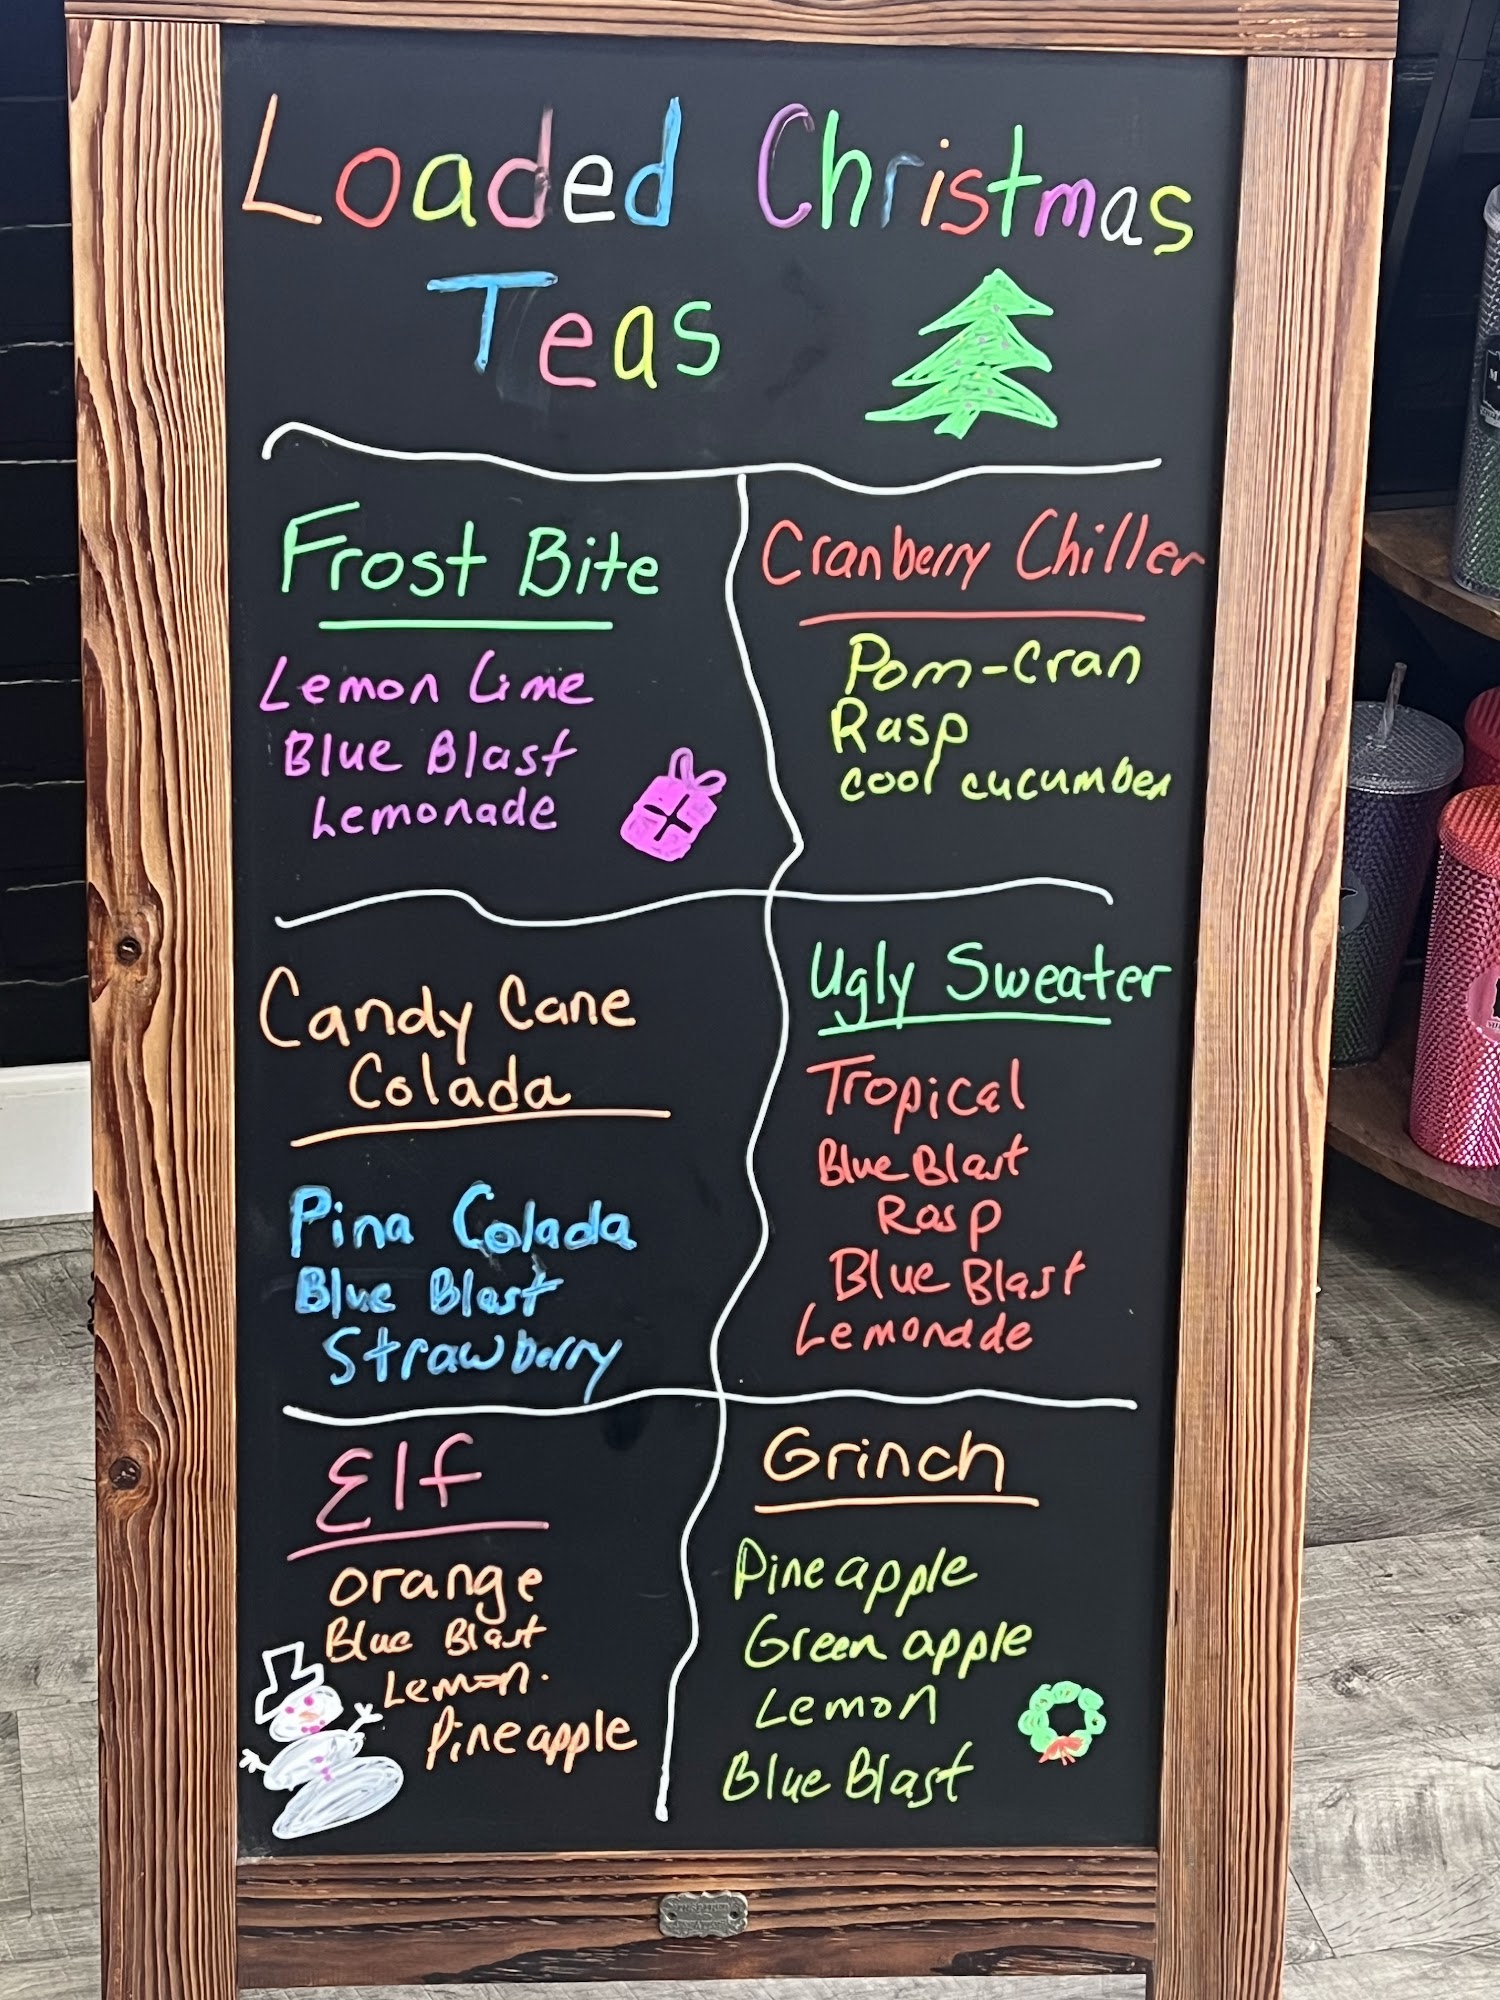 Loaded Christmas
Teas
Frost Bite
Lemon Lime
Blue Blast
Lemonade
Cranberry Chiller
Pom-Cran
Rasp
cool cucumber
Candy Cane
Colada
Pina Colada
Blue Blast
Strawberry
Ugly Sweater
Tropical
Blue Blast
Rasp
Blue Blast
Lemonade
Elf
orange
Blue Blast
Lemon.
Pineapple
Grinch
Pineapple
Green apple
Lemon
Blue Blast